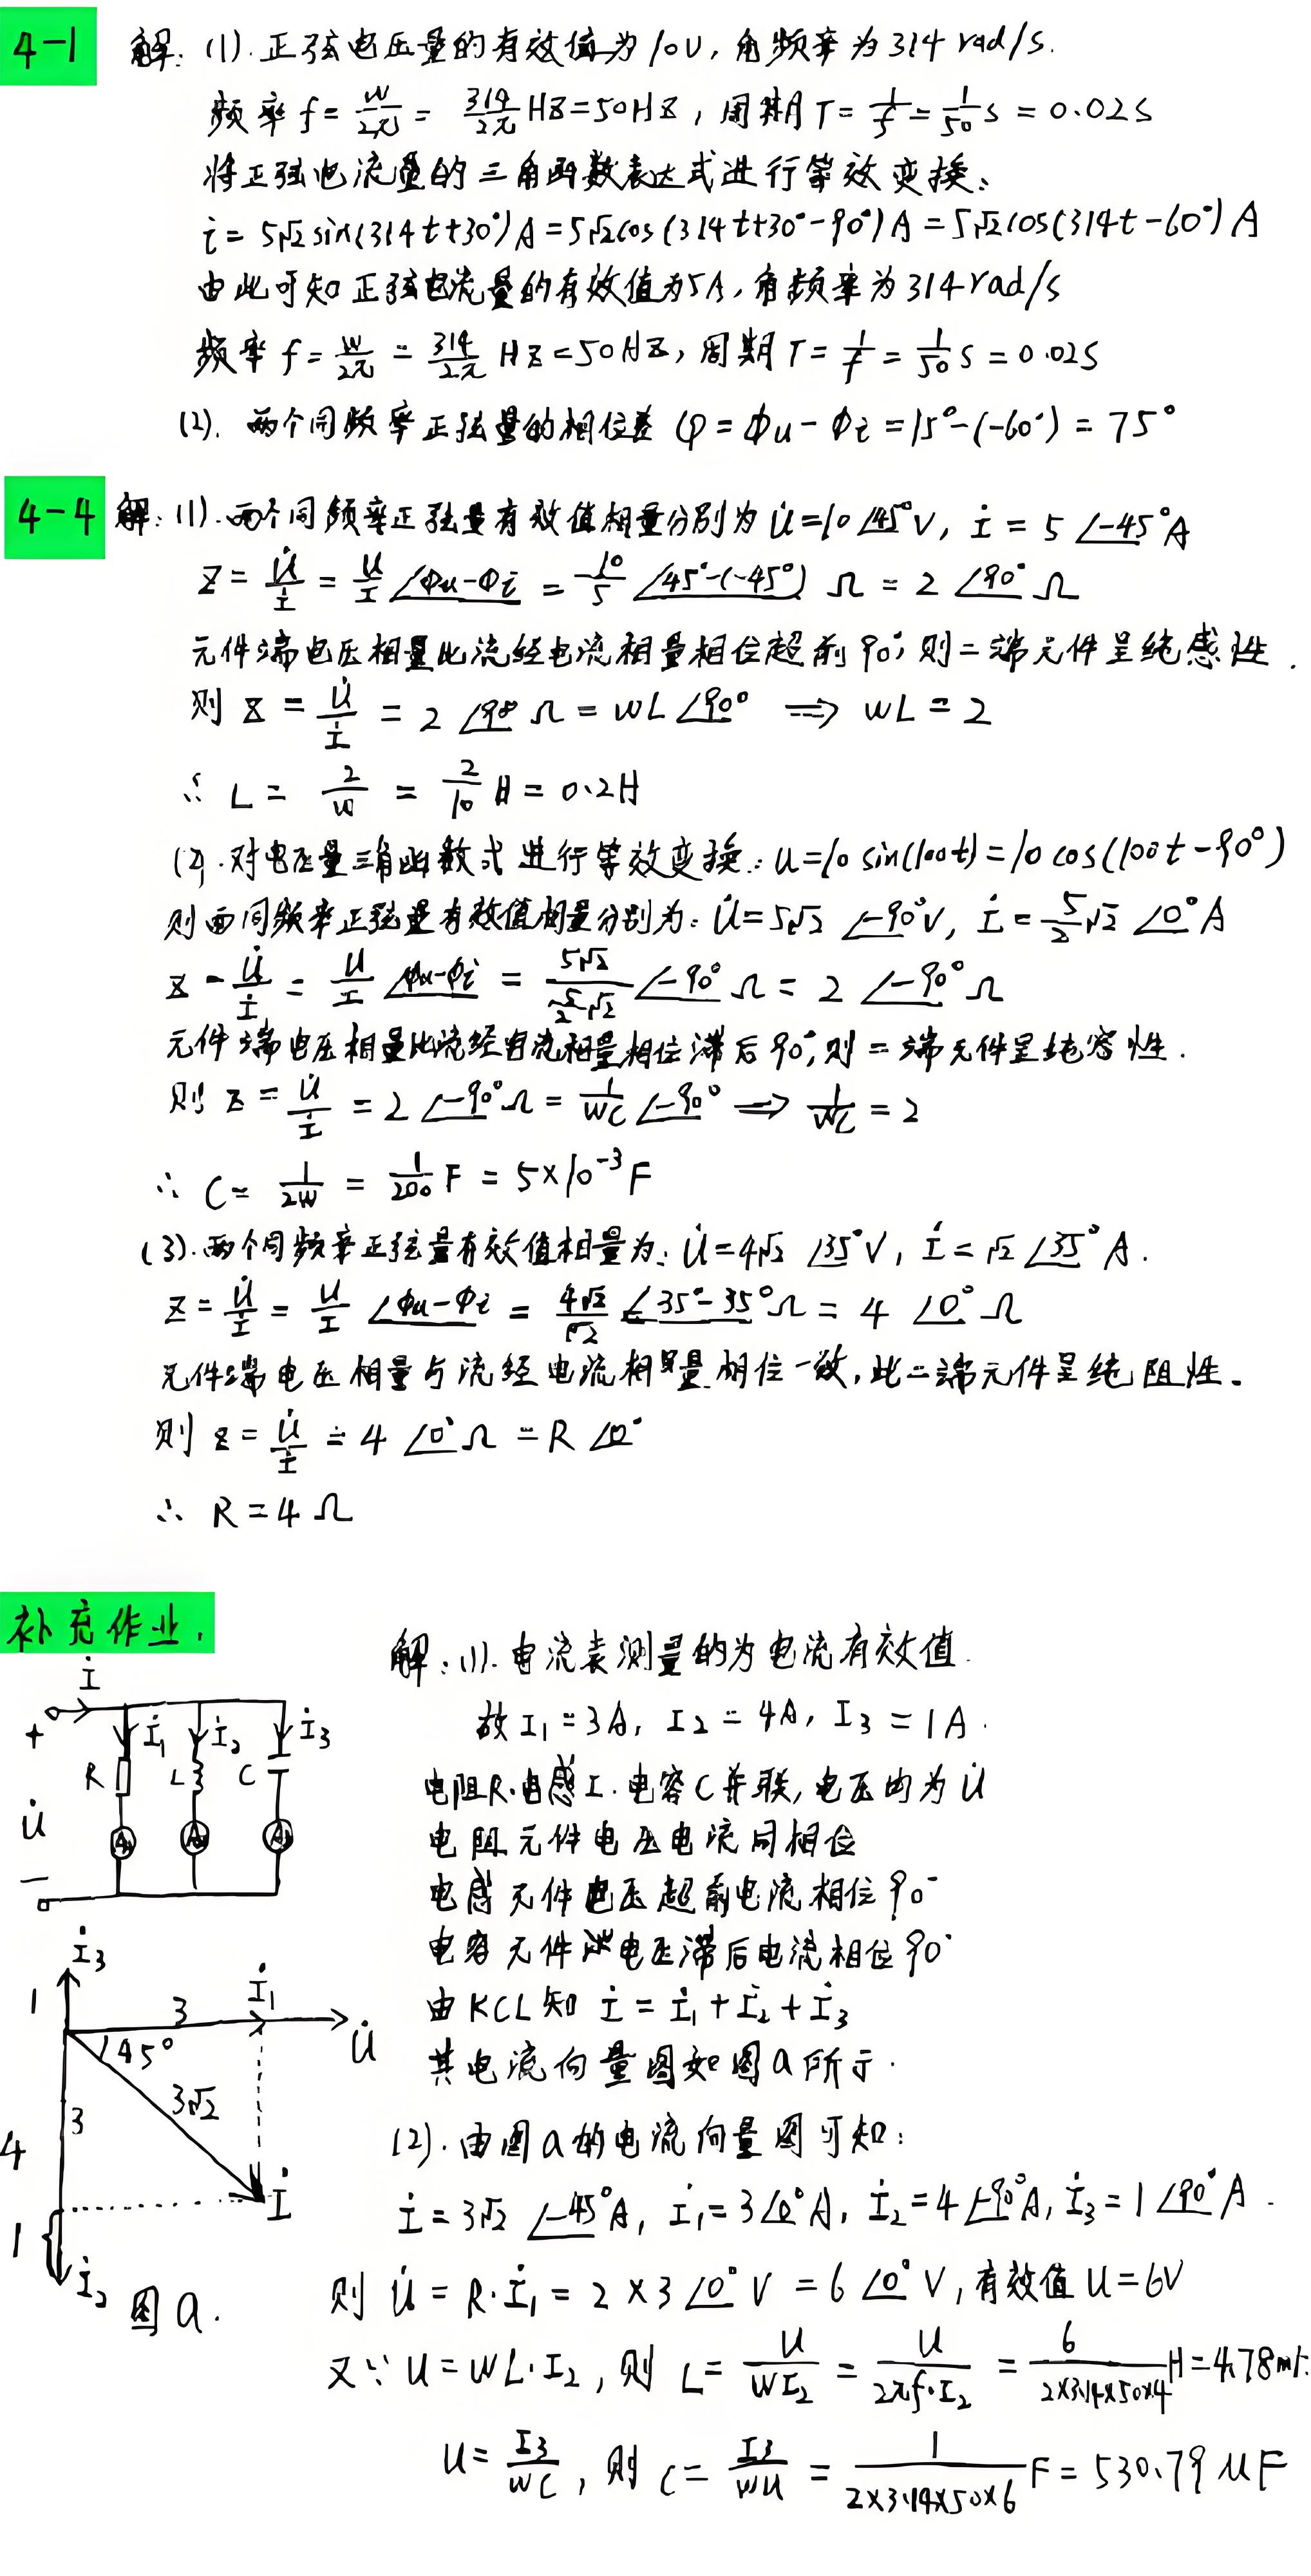 4-1 解: (1). 正弦电压量的有效值为10V, 角频率为314 rad/s.
频率 f = w/2π = 314/2π HZ = 50HZ, 周期 T = 1/f = 1/50 s = 0.02s
将正弦电流量的三角函数表达式进行等效变换:
i = 5√2 sin(314t+30°)A = 5√2 cos(314t+30°-90°)A = 5√2 cos(314t-60°)A
由此可知正弦电流量的有效值为5A, 角频率为314rad/s
频率 f = w/2π = 314/2π HZ = 50HZ, 周期 T = 1/f = 1/50 s = 0.02s
(2). 两个同频率正弦量的相位差 φ = Φu - Φi = 15° - (-60°) = 75°
4-4 解: (1). 两个同频率正弦量有效值相量分别为 U̇ = 10∠45°V, İ = 5∠-45°A
Z = U̇/İ = U/I ∠Φu-Φi = 10/5 ∠45°-(-45°) Ω = 2∠90° Ω
元件端电压相量比流经电流相量相位超前90°, 则二端元件呈纯感性.
则 Z = U̇/İ = 2∠90° Ω = wL∠90° ⟹ wL = 2
∴ L = 2/w = 2/10 H = 0.2H
(2). 对电压量三角函数式进行等效变换: u = 10 sin(100t) = 10 cos(100t-90°)
则两同频率正弦量有效值相量分别为: U̇ = 5√2∠-90°V, İ = 5/2√2∠0°A
Z = U̇/İ = U/I ∠Φu-Φi = 5√2/(5/2√2) ∠-90° Ω = 2∠-90° Ω
元件端电压相量比流经电流相量相位滞后90°, 则二端元件呈纯容性.
则 Z = U̇/İ = 2∠-90° Ω = 1/wC ∠-90° ⟹ 1/wC = 2
∴ C = 1/2w = 1/200 F = 5×10⁻³F
(3). 两个同频率正弦量有效值相量为: U̇ = 4√2∠35°V, İ = √2∠35°A.
Z = U̇/İ = U/I ∠Φu-Φi = 4√2/√2 ∠35°-35° Ω = 4∠0° Ω
元件端电压相量与流经电流相量相位一致, 此二端元件呈纯阻性.
则 Z = U̇/İ = 4∠0° Ω = R∠0°
∴ R = 4Ω
补充作业.
İ
+
İ₁ İ₂ İ₃
R L C
U̇
A₁ A₂ A₃
-
İ₃
1
3
İ₁
U̇
45°
3√2
3
4
1
İ
İ₂
图a.
解: (1). 电流表测量的为电流有效值.
故 I₁ = 3A, I₂ = 4A, I₃ = 1A.
电阻R.电感I.电容C并联, 电压均为U̇
电阻元件电压电流同相位
电感元件电压超前电流相位90°
电容元件电压滞后电流相位90°
由KCL知 İ = İ₁ + İ₂ + İ₃
其电流向量图如图a所示.
(2). 由图a的电流向量图可知:
İ = 3√2∠-45°A, İ₁ = 3∠0°A, İ₂ = 4∠-90°A, İ₃ = 1∠90°A.
则 U̇ = R·İ₁ = 2×3∠0°V = 6∠0°V, 有效值U=6V
又∵ U = wL·I₂, 则 L = U/wI₂ = U/2πf·I₂ = 6/2×3.14×50×4 H = 4.78mH
U = I₃/wC, 则 C = I₃/wU = 1/2×3.14×50×6 F = 530.79μF